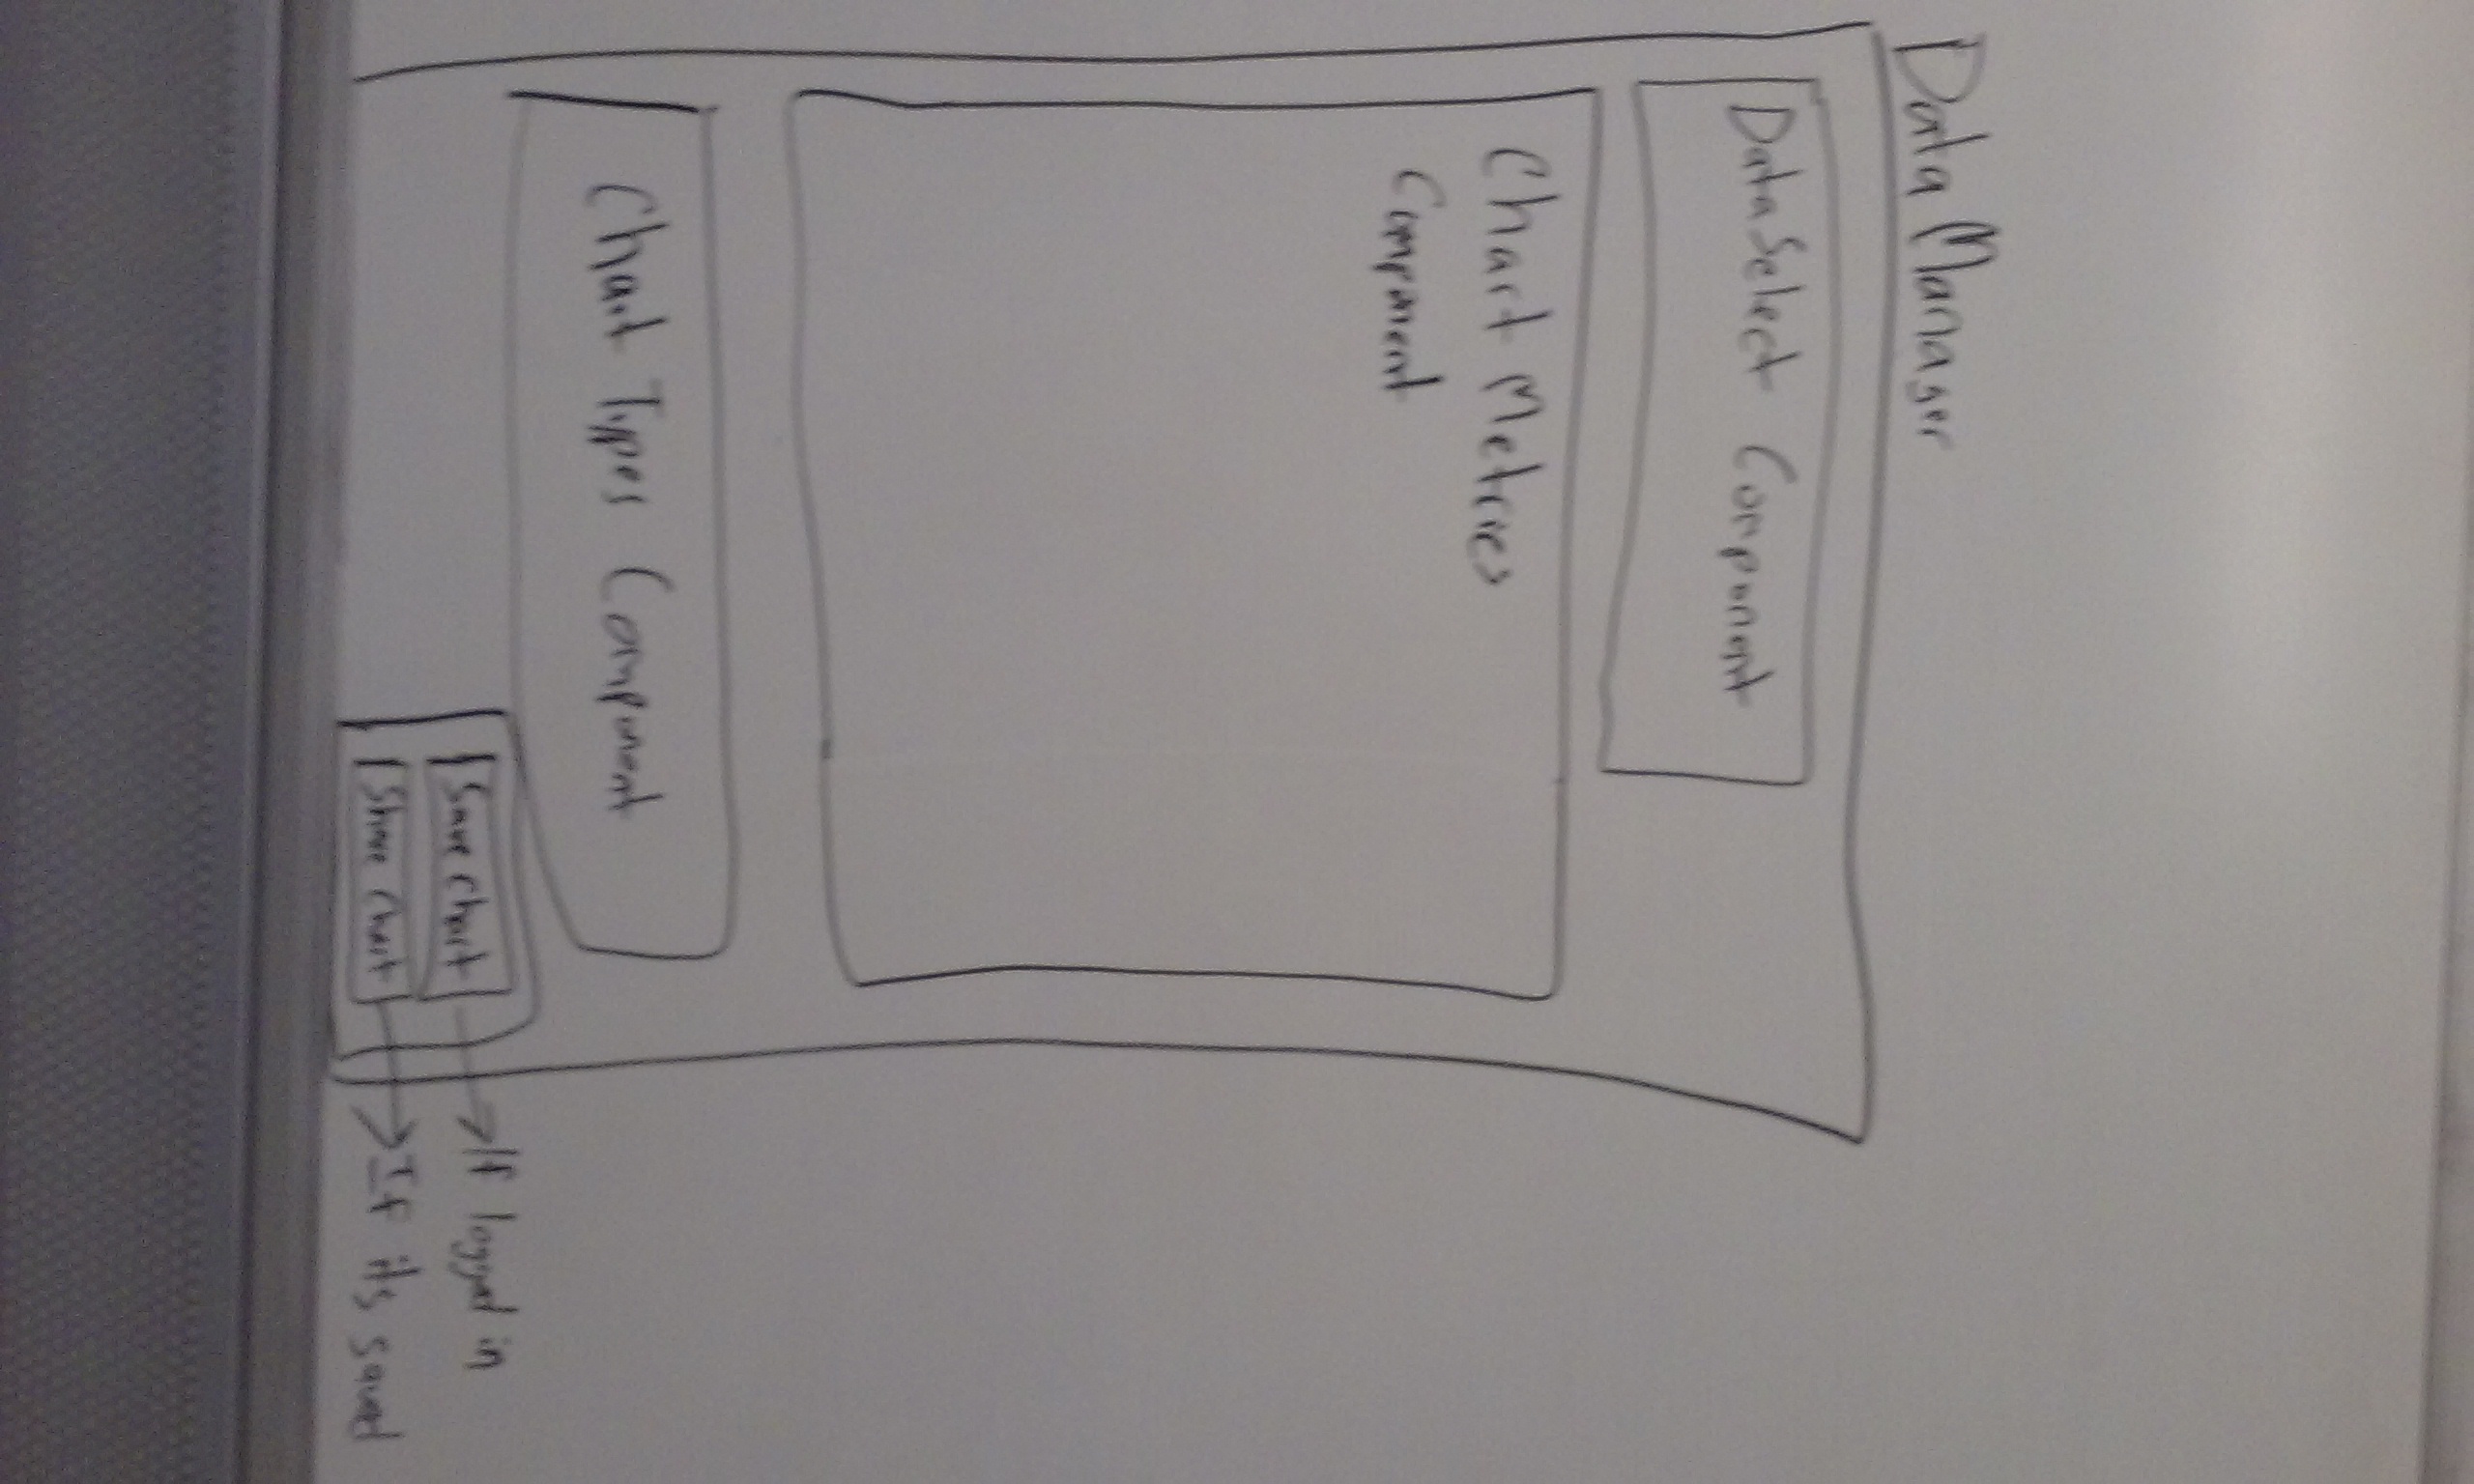 Data Manager
DataSelect Component
Chart Metrics
Component
Chart Types Component
Save Chart
If logged in
Share Chart
If its saved